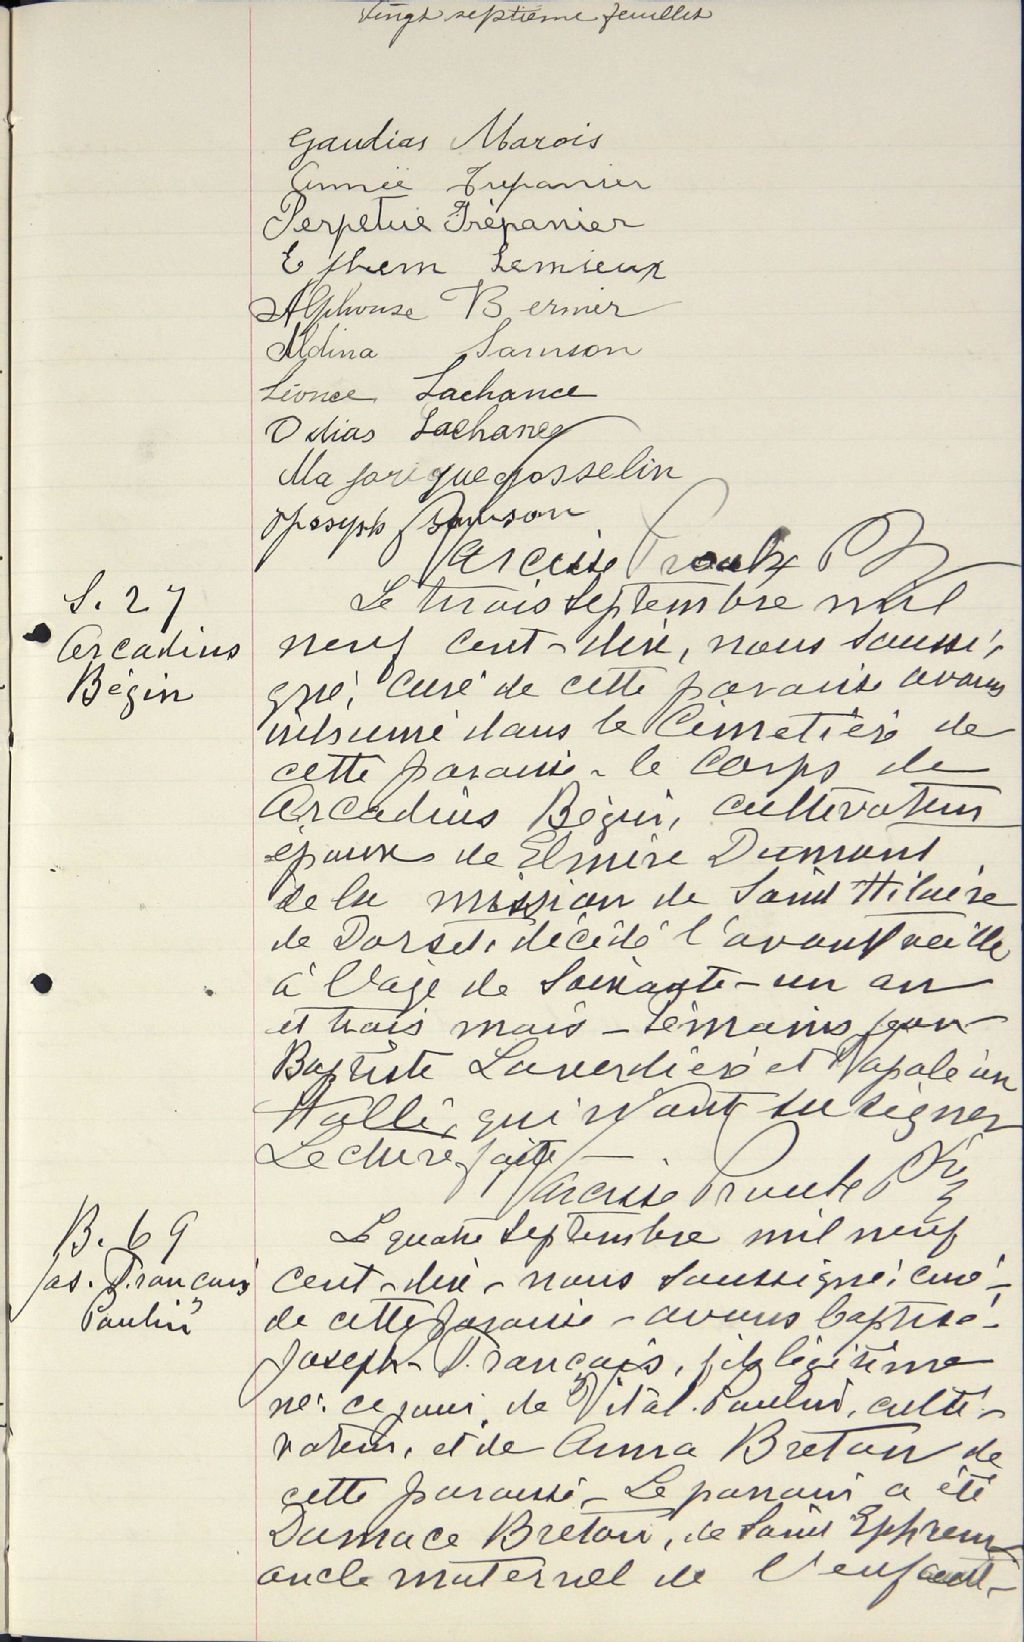 Vingt septième feuillet
Gaudias Marois
Annie Trepanier
Perpetue Trépanier
Ephrem Lemieux
Alphonse Bernier
Aldina Samson
Léonce Lachance
Odias Lachance
Majorique Gosselin
Joseph Samson
Narcisse Proulx Ptre
S. 27
Arcadius
Bégin
Le trois Septembre mil
neuf cent-dix, nous soussi-
gné, Curé de cette paroisse avons
inhumé dans le Cimetière de
cette paroisse - le Corps de
Arcadius Bégin, cultivateur
époux de Elmire Dumont
de la mission de Saint Hilaire
de Dorset, décédé l'avant veille
à l'age de Soixante-un an
et trois mois - Témoins Jean-
Baptiste Laverdière et Napoléon
Hallé, qui n'ont su signer
Lecture faite
Narcisse Proulx Ptre
B. 69
Jos. François
Poulin
Le quatre Septembre mil neuf
cent-dix - nous soussigné, curé -
de cette paroisse - avons baptisé -
Joseph-François, fils légitime
né ce jour, de Vital Poulin, culti-
vateur, et de Anna Breton de
cette paroisse - Le parrain a été
Dumace Breton, de Saint Ephrem
oncle maternel de l'enfant -